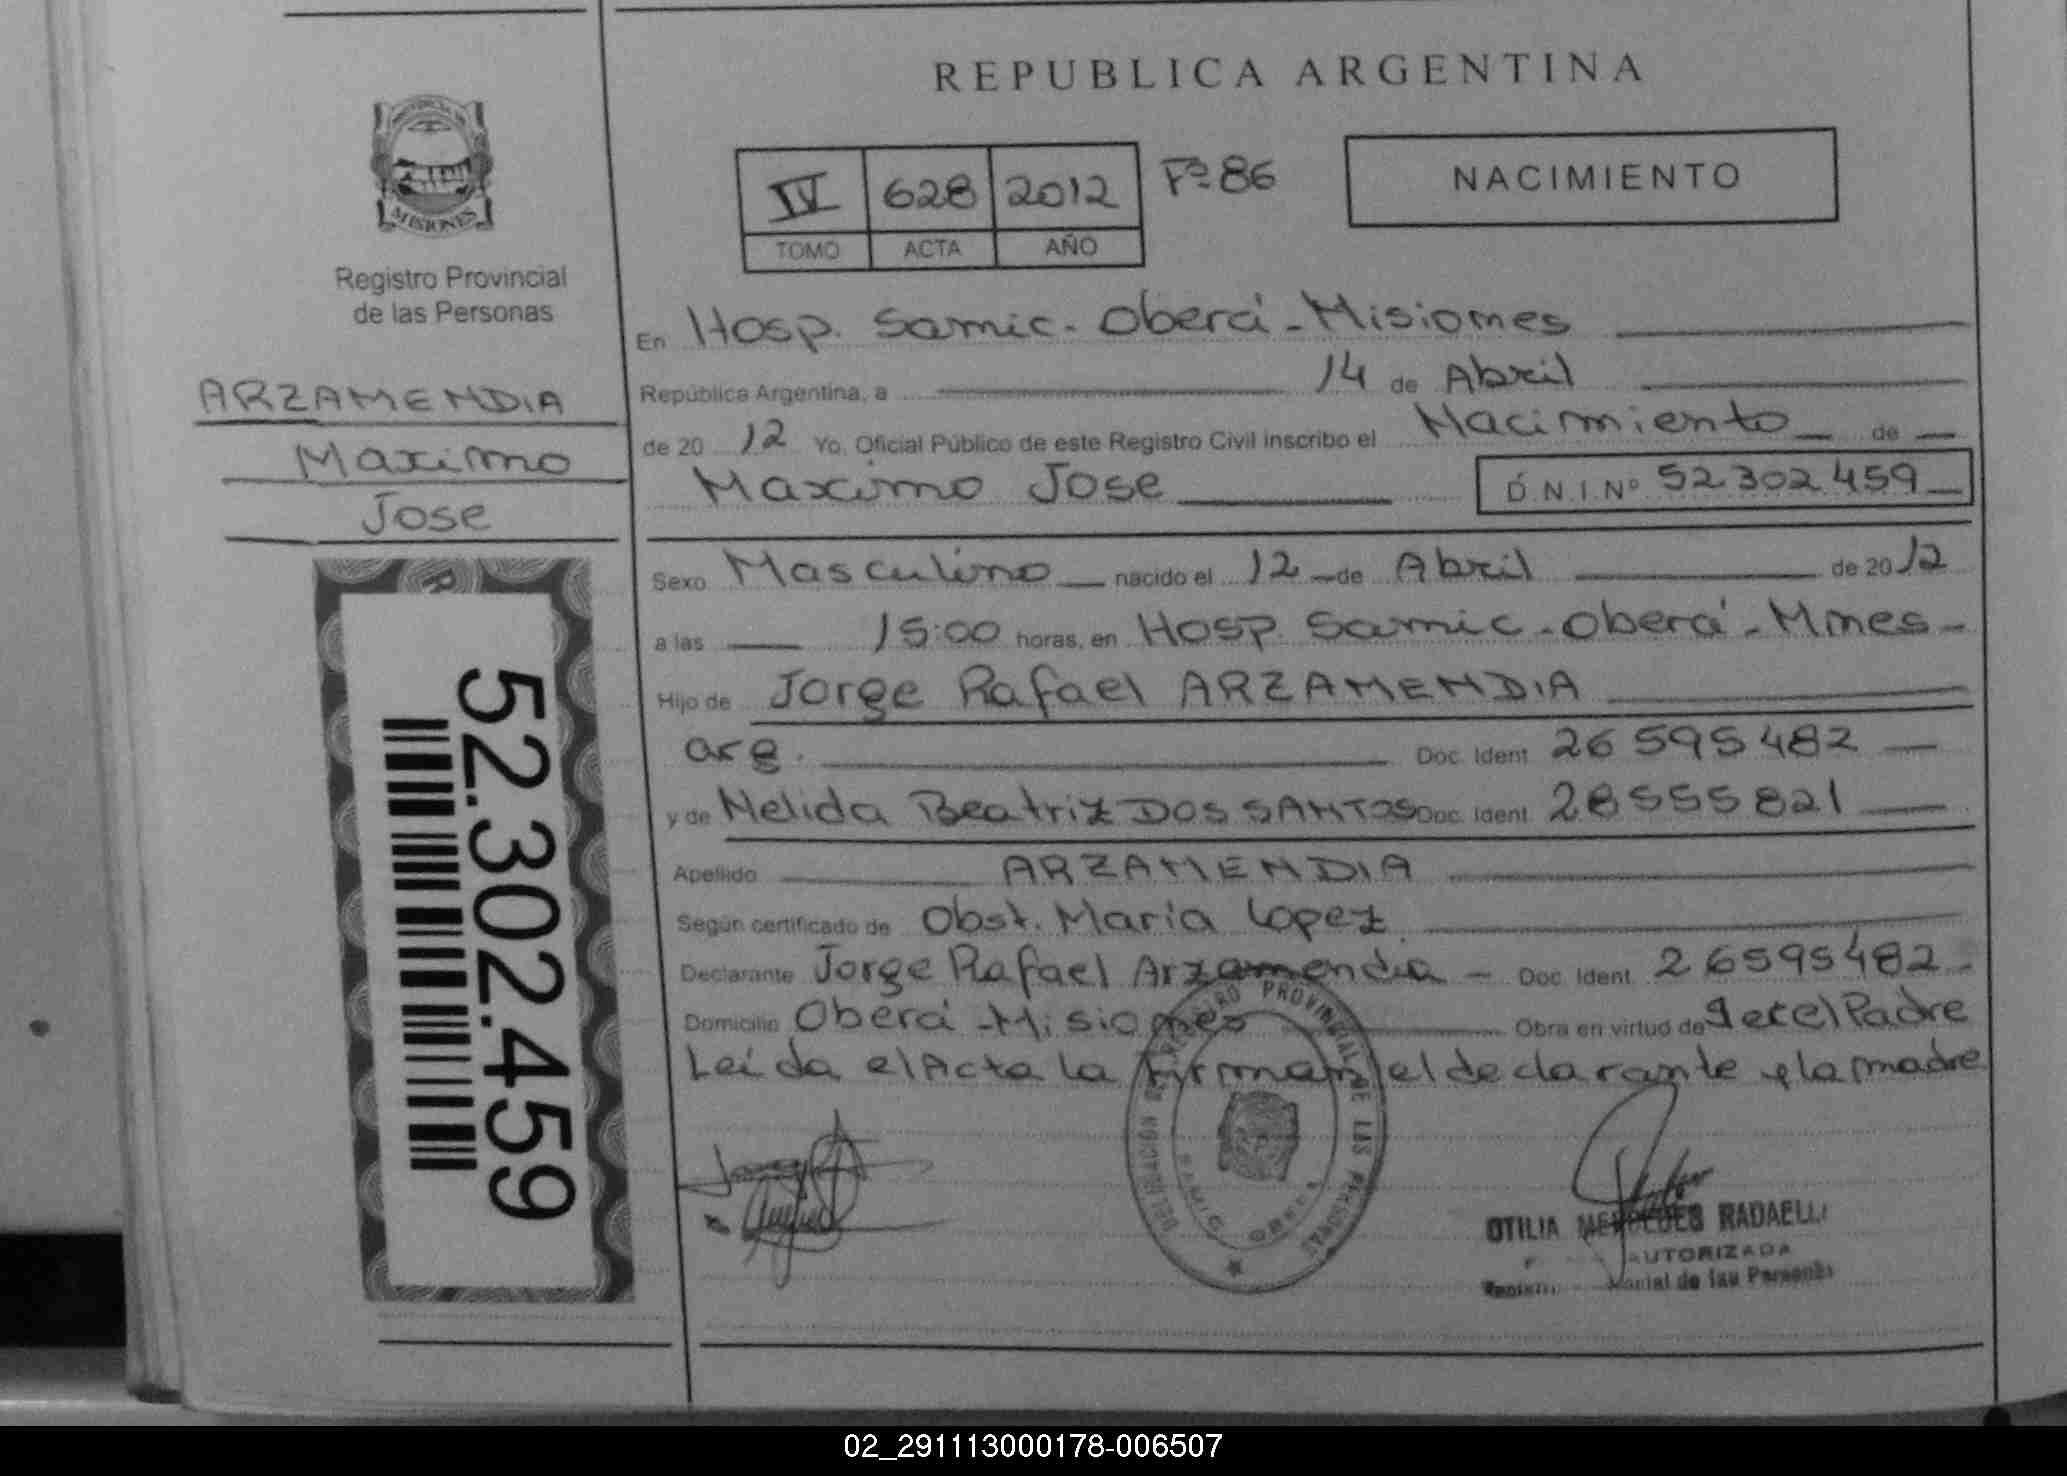 REPUBLICA ARGENTINA
PROVINCIA DE
MISIONES
Registro Provincial
de las Personas
ARZAMENDIA
Maximo
Jose
52.302.459
IV 628 2012 Fº 86
TOMO ACTA AÑO
NACIMIENTO
En Hosp. Samic - Oberá - Misiones
República Argentina, a 14 de Abril
de 2012 Yo, Oficial Público de este Registro Civil inscribo el Nacimiento de
Maximo Jose D.N.I Nº 52.302.459
Sexo Masculino nacido el 12 de Abril de 2012
a las 15:00 horas, en Hosp. Samic - Oberá - Mnes -
Hijo de Jorge Rafael ARZAMENDIA
arg. Doc. Ident. 26 595 482
y de Nelida Beatriz DOS SANTOS Doc. Ident. 28 555 821
Apellido ARZAMENDIA
Según certificado de Obst. Maria Lopez
Declarante Jorge Rafael Arzamendia - Doc. Ident. 26595482 -
Domicilio Oberá - Misiones Obra en virtud de el Padre
Leída el Acta la firman el declarante y la madre
DELEGACIÓN REGISTRO PROVINCIAL DE LAS PERSONAS
SAMIC OBERA
OTILIA MERCEDES RADAELLI
AUTORIZADA
de las Personas
02_291113000178-006507